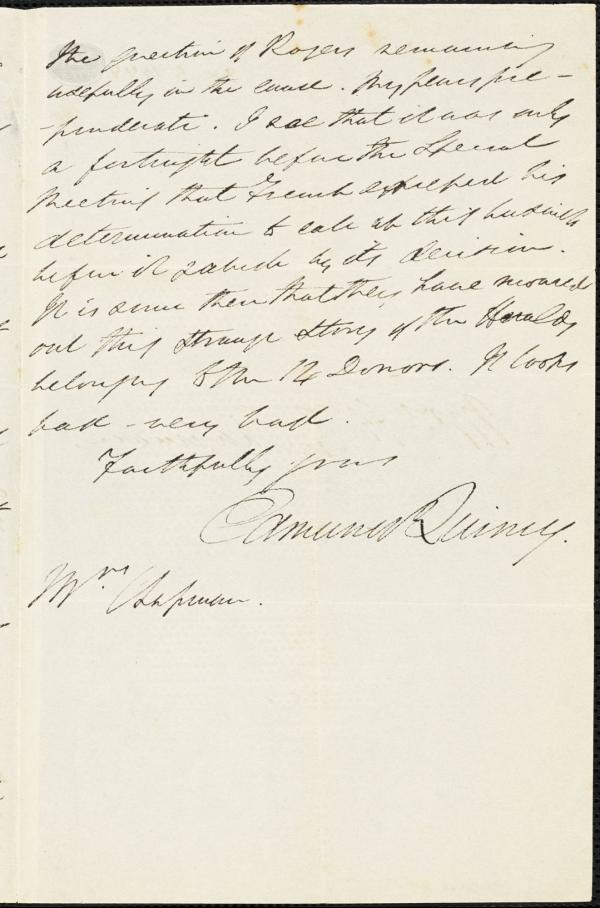 the question of Rogers remaining
usefully in the cause. My fears pre-
-ponderate. I see that it was only
a fortnight before the Special
Meeting that French expressed his
determination to this business
before it by its decision.
It is since then that they have
out this strange story of the Herald's
belonging to the 14 Donors. It looks
bad - very bad.
Faithfully yours
Edmund Quincy.
Mrs Chapman.